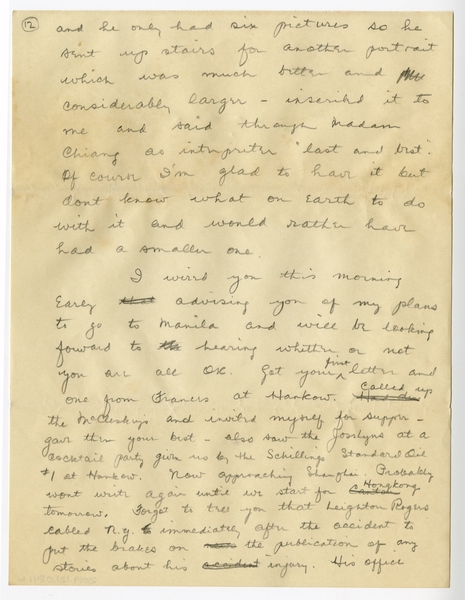 12
and he only had six pictures so he
sent up stairs for another portrait
which was much better and
considerably larger - inscribed it to
me and said through Madam
Chiang as intrpriter "last and best".
Of course I'm glad to have it but
dont know what on Earth to do
with it and would rather have
had a smaller one.
I wired you this morning
Early that advising you of my plans
to go to Manila and will be looking
forward to hearing whether or not
you are all OK. Got your first letter and
one from Frances at Hankow. Called up
the McCleskys and invited myself for supper -
gave them your best - also saw the Josslyns at a
cocktail party given us by the Schillings Standard Oil
#1 at Hankow. Now approaching Shanghai. Probably
wont write again until we start for Canton Hongkong
tomorrow. Forgot to tell you that Leighton Rogers
cabled N.Y. immediately after the accident to
put the brakes on the publication of any
stories about his accident injury. His office